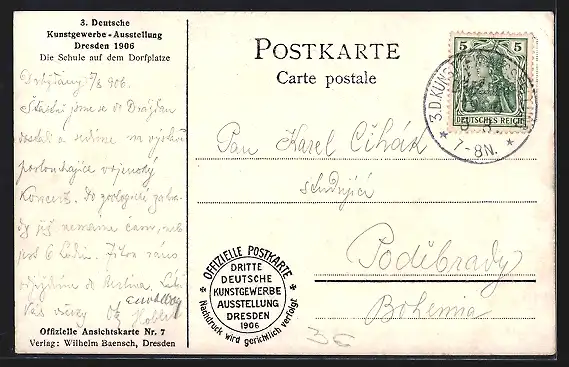 3. Deutsche
Kunstgewerbe-Ausstellung
Dresden 1906
Die Schule auf dem Dorfplatze
906.
Šťastně jsme se do Drážďan
dostali a sedíme na výstavě
poslouchajíce vojenský
Koncert. Do zoologické zahra-
dy již nemáme času, neb
jest 6 hodin. Zítra ráno
odjíždíme do Berlína.
Vás všecky
Offizielle Ansichtskarte Nr. 7
Verlag: Wilhelm Baensch, Dresden
POSTKARTE
Carte postale
5 5
DEUTSCHES REICH
3.D.KUNST
7-8N.
Pan Karel Čihák
studující
Poděbrady
Bohemia
OFFIZIELLE POSTKARTE
DRITTE
DEUTSCHE
KUNSTGEWERBE
AUSSTELLUNG
DRESDEN
1906
Nachdruck wird gerichtlich verfolgt